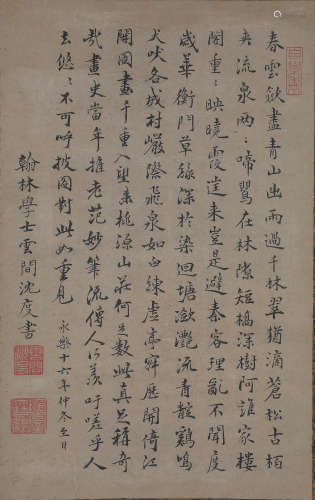 春雲斂盡青山出雨過千林翠猶滴蒼松古栢
夾流泉兩兩啼鸎在林隙短橋深樹阿誰家樓
閣重重映曉霞豈來豈是避秦客理亂不聞度
歲華衡門草緑深於染回塘瀲灩流青靛鷄鳴
犬吠各成村巖際飛泉如白練虚亭窄歷開倚江
開圖畫千重入望来桃源山莊何足數此真足稱奇
哉畫史當年推老范妙筆流傳人所羡吁嗟乎人
去悠悠不可呼披圖對此如重見
永樂十六年仲冬至日
翰林學士雲間沈度書